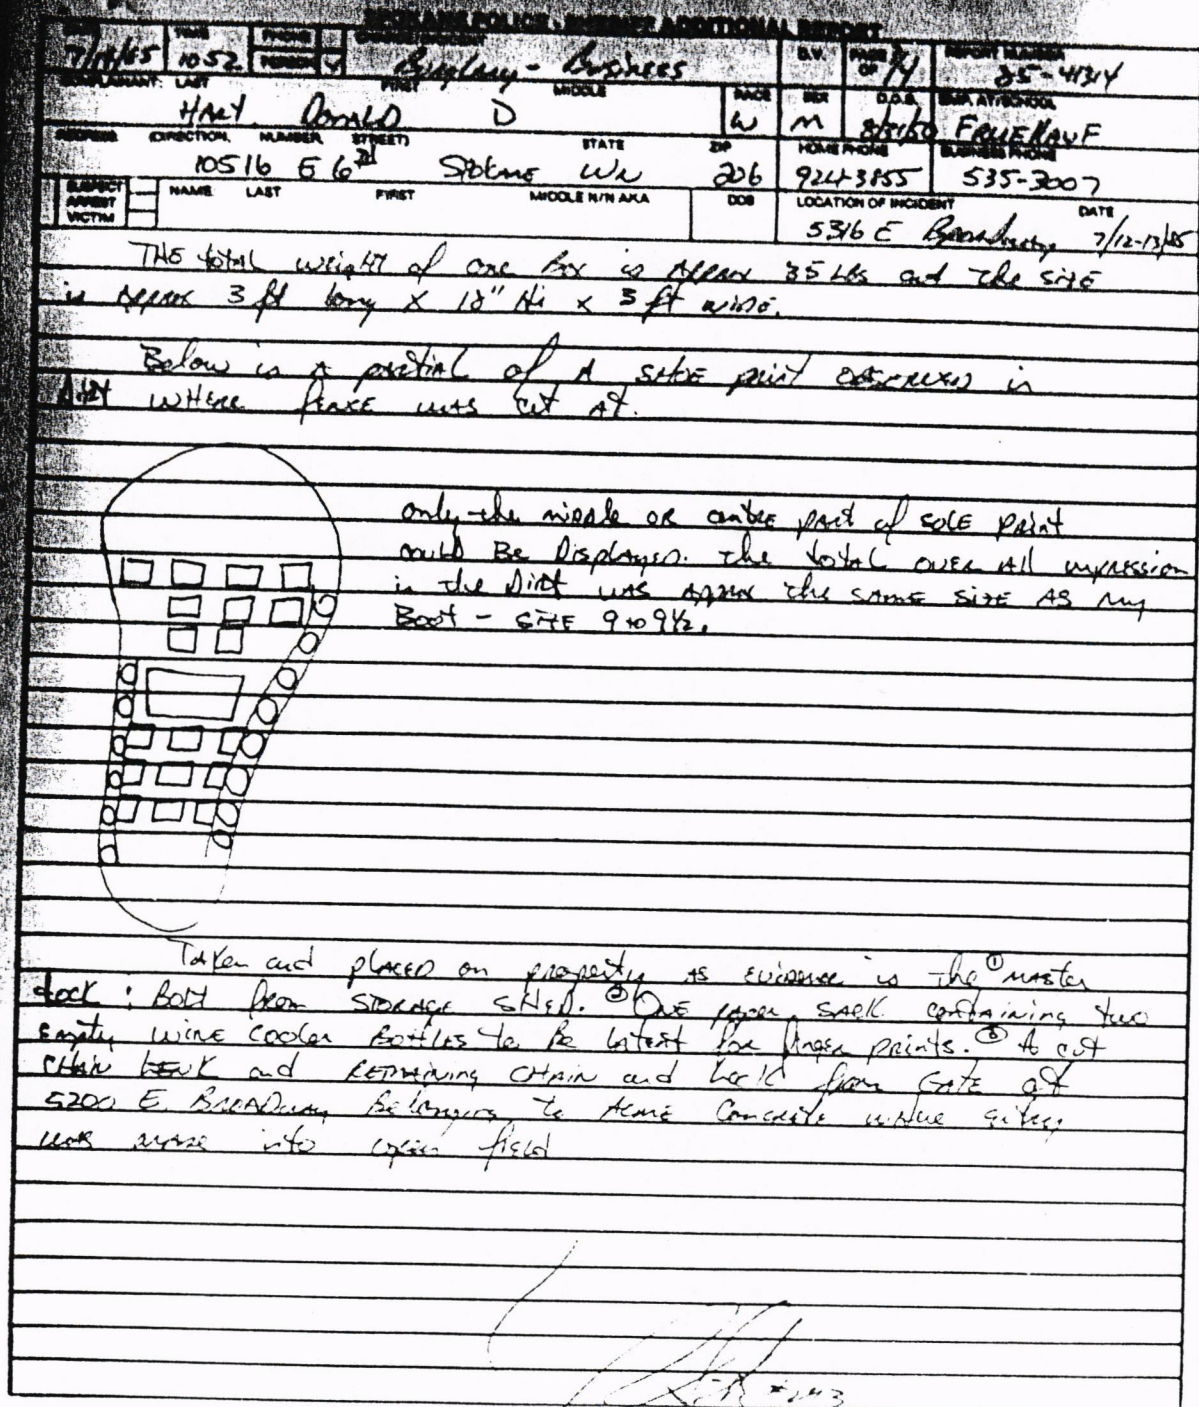 SPOKANE POLICE - SHERIFF ADDITIONAL REPORT
TIME PHONE D.V. PAGE OF REPORT NUMBER
1052 PERSON Burglary - Business 4 85-41314
COMPLAINANT: LAST FIRST MIDDLE RACE SEX D.O.B. EMP. AT/SCHOOL
HART DONALD D W M FRUEHAUF
ADDRESS DIRECTION, NUMBER, STREET) STATE ZIP HOME PHONE BUSINESS PHONE
10516 E 6th Spokane WN 206 924-3855 535-3007
SUSPECT ARREST VICTIM NAME LAST FIRST MIDDLE N/N AKA DOB LOCATION OF INCIDENT DATE
5316 E Broadway 7/12-13/85
THE total weight of one Box is Approx 35 Lbs and the SIZE
is Approx 3 ft long x 18" Hi x 3 ft wide.
Below is A partial of A SHOE print OBSERVED in
Dirt WHERE fence was cut At.
only the middle OR centre part of SOLE print
could Be Displayed. The total over All impression
in the Dirt was Approx the SAME SIZE AS my
Boot - SIZE 9 to 9½.
Taken and placed on property AS evidence is The ① master
Lock : Bolt from STORAGE SHED. ② One paper SACK containing two
Empty wine cooler Bottles to be latent for finger prints. ③ A cut
CHAIN LINK and REMAINING CHAIN and Lock from GATE at
5200 E. BROADWAY Belonging to Acme Concrete where entry
was made into open field